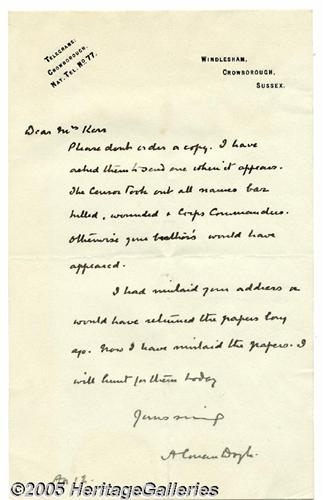 TELEGRAMS:
CROWBOROUGH.
NAT. TEL. NO. 77.
WINDLESHAM,
CROWBOROUGH,
SUSSEX.
Dear Mrs Kerr
Please dont order a copy. I have
asked them to send one when it appears.
The Censor took out all names bar
killed, wounded & Corps Commanders.
Otherwise your brother's would have
appeared.
I had mislaid your address or
would have returned the papers long
ago. Now I have mislaid the papers. I
will hunt for them today
Yours
A Conan Doyle
©2005 HeritageGalleries